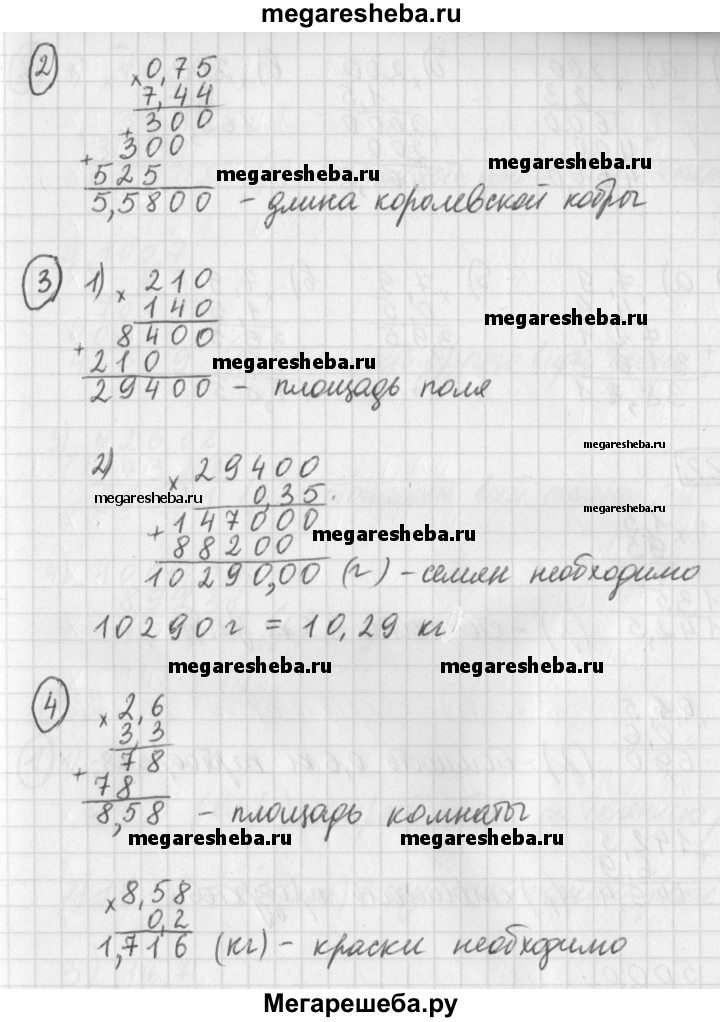 megaresheba.ru
2 × 0,75
7,44
+ 300
+ 300
525 megaresheba.ru megaresheba.ru
5,5800 – длина королевской кобры
3 1) × 210
140
8400 megaresheba.ru
+ 210 megaresheba.ru
29400 – площадь поля
megaresheba.ru
2) × 29400
megaresheba.ru 0,35
+ 147000 megaresheba.ru
88200 megaresheba.ru
10290,00 (г) – семян необходимо
10290 г = 10,29 кг
megaresheba.ru megaresheba.ru
4 × 2,6
3,3
+ 78
78
8,58 – площадь комнаты
megaresheba.ru megaresheba.ru
× 8,58
0,2
1,716 (кг) – краски необходимо
Мегарешеба.ру